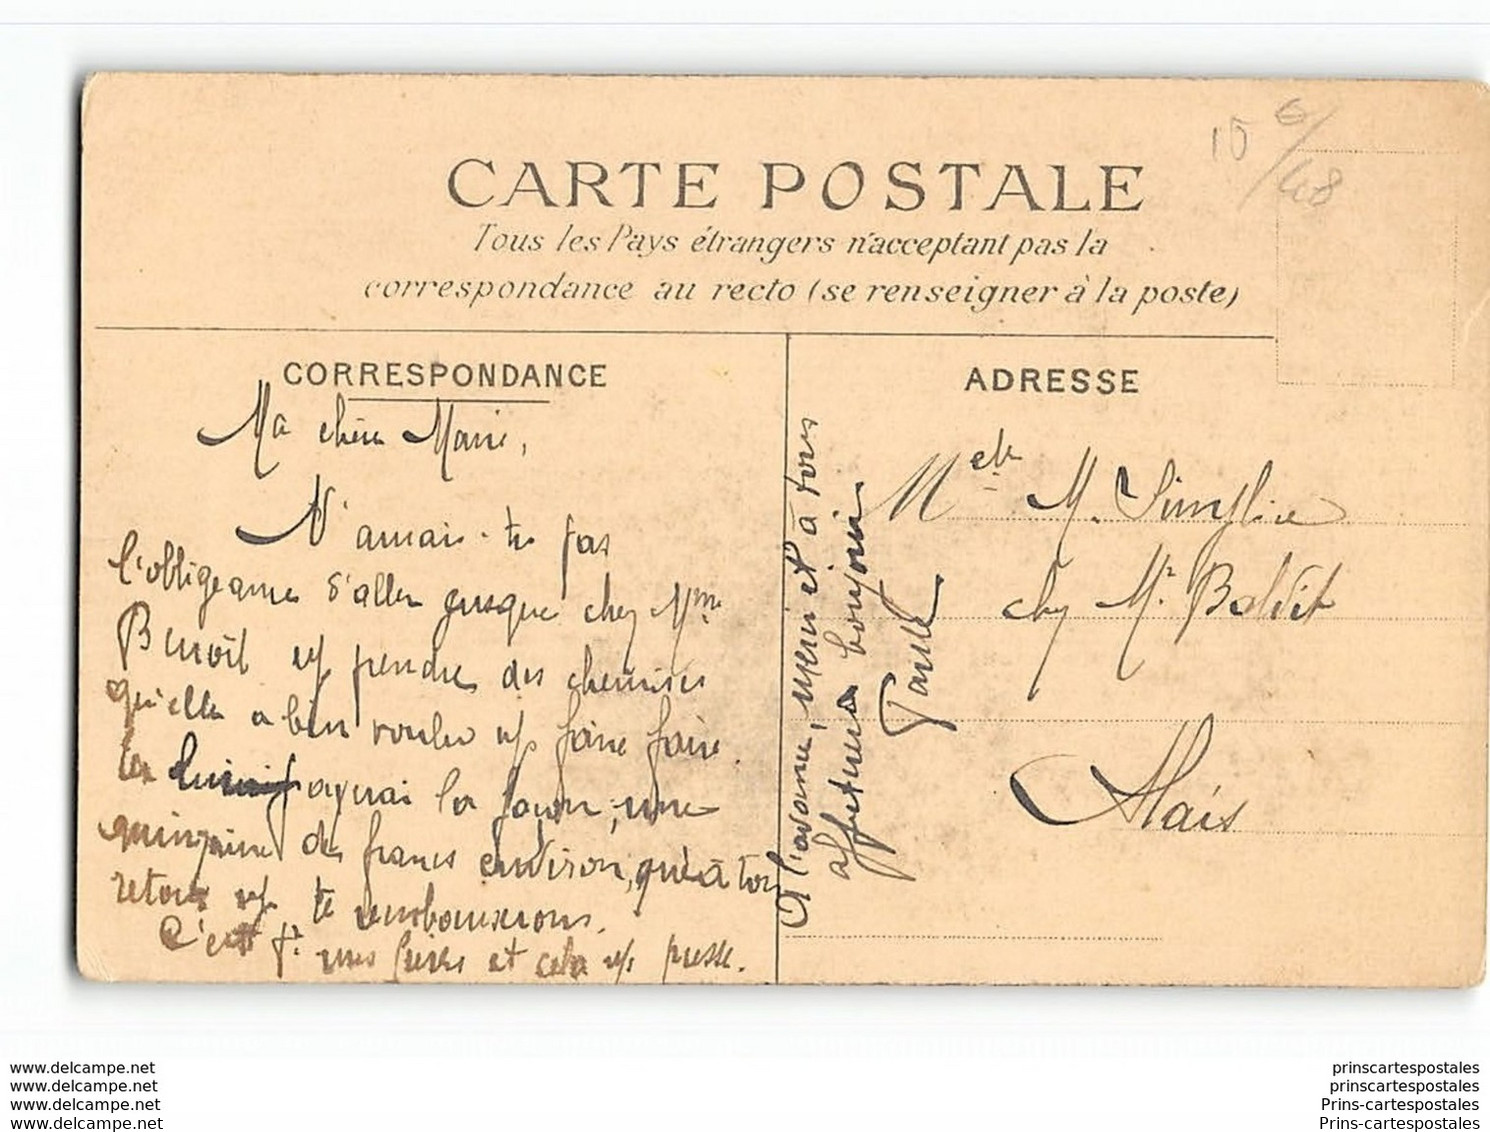 15 6/48
CARTE POSTALE
Tous les Pays étrangers n'acceptant pas la
correspondance au recto (se renseigner à la poste)
CORRESPONDANCE
Ma chère Marie,
N'aurais-tu pas
l'obligeance d'aller jusque chez Mme
Benoît prendre des chemises
qu'elle a bien voulu faire faire.
la façon, une
quinzaine de francs environ, qu'à ton
retour te rembourserons.
C'est pr mes frères et cela presse.
A l'avance, merci et à tous
affectueux bonjour
Paule
ADRESSE
Melle M. Simplice
chez Mr
Alais
www.delcampe.net
www.delcampe.net
www.delcampe.net
www.delcampe.net
prinscartespostales
prinscartespostales
Prins-cartespostales
Prins-cartespostales